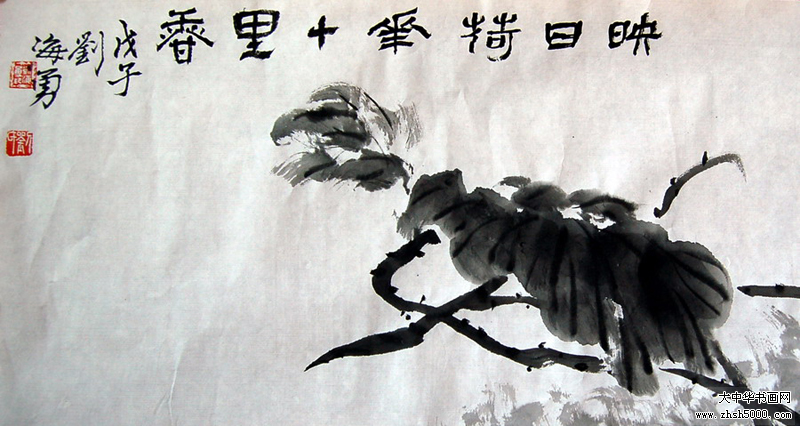 映日荷花十里香
戊子
劉
海勇
大中华书画网
www.zhsh5000.com